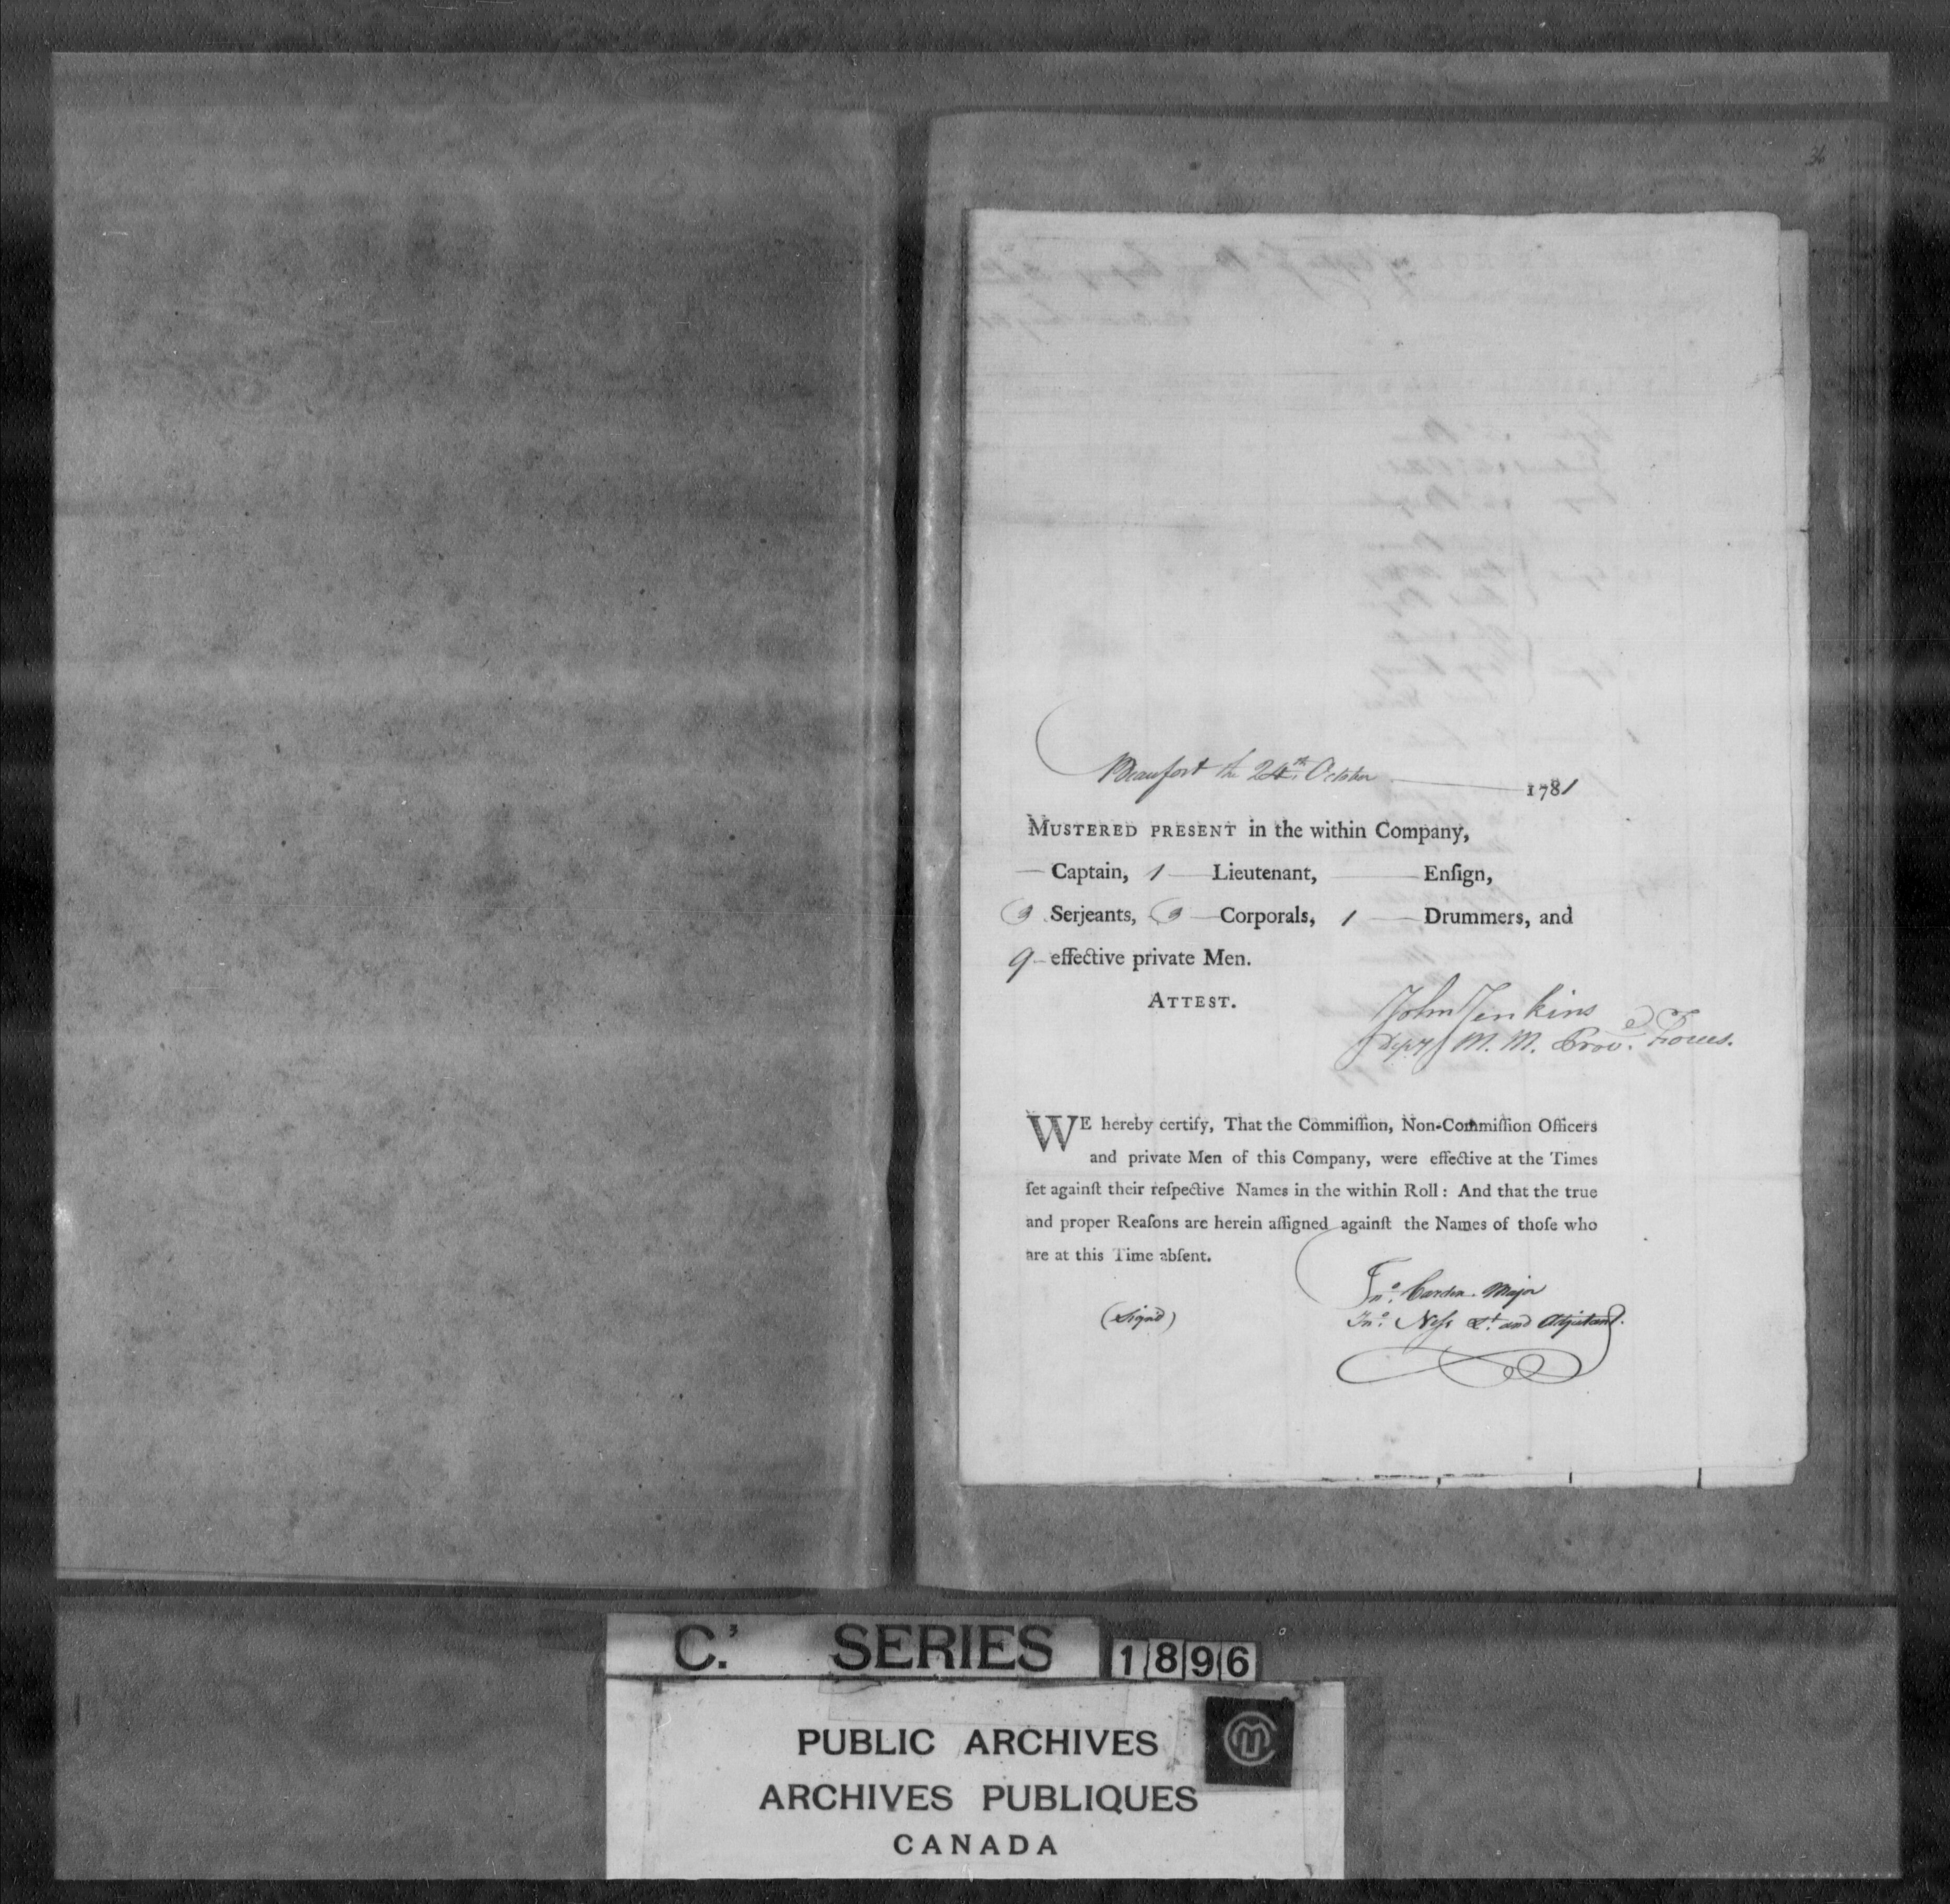 36
Beaufort the 24th October 1781
MUSTERED PRESENT in the within Company,
— Captain, 1 — Lieutenant, — Ensign,
3 Serjeants, 3 — Corporals, 1 — Drummers, and
9 — effective private Men.
ATTEST.
John Jenkins
Depy M. M. Provd. Forces.
WE hereby certify, That the Commiſſion, Non-Commiſſion Officers
and private Men of this Company, were effective at the Times
ſet againſt their reſpective Names in the within Roll: And that the true
and proper Reaſons are herein aſſigned againſt the Names of thoſe who
are at this Time abſent.
Jno. Carden Major
(Signd) Jno. Neſs Lt. and Adjutant.
C.' SERIES 1896
PUBLIC ARCHIVES
ARCHIVES PUBLIQUES
CANADA